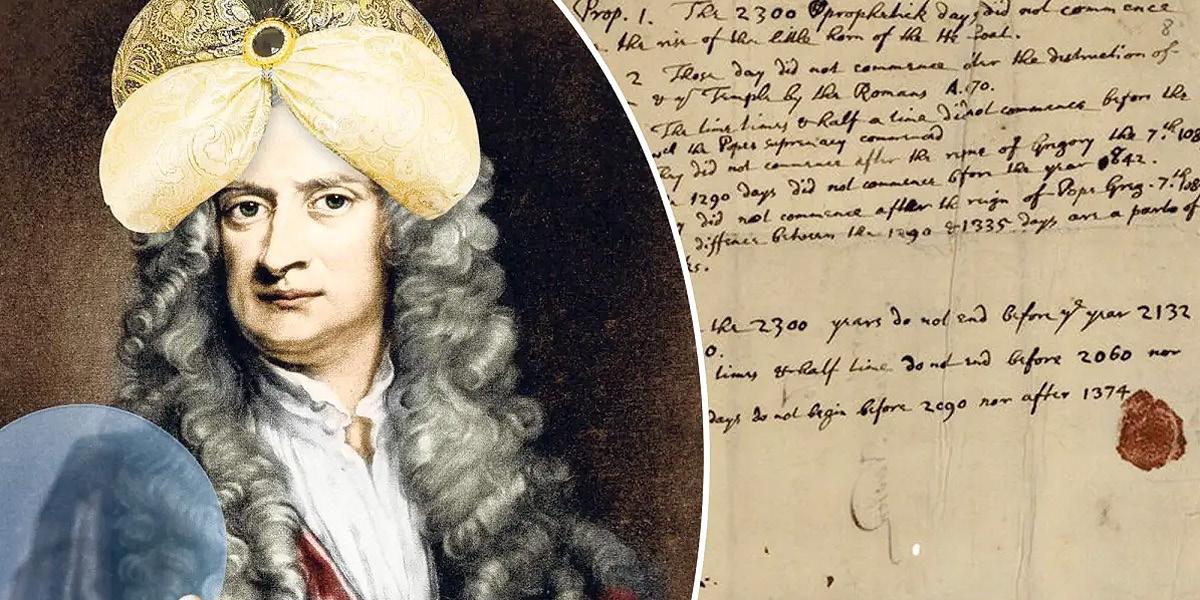 Prop. 1. The 2300 prophetick days did not commence
the rise of the little horn of the He Goat.
2 Those day did not commence after the destruction of
& ye Temple by the Romans A. 70.
The time times & half a time did not commence before the
the Popes supremacy commenced
did not commence after the reigne of Gregory the 7.th 108
1290 days did not commence before the year 842.
did not commence after the reign of Pope Greg. 7.th 108
diffence between the 1290 & 1335 days are a parts of
the 2300 years do not end before ye year 2132
0.
times & half time do not end before 2060 nor
days do not begin before 2090 nor after 1374
8